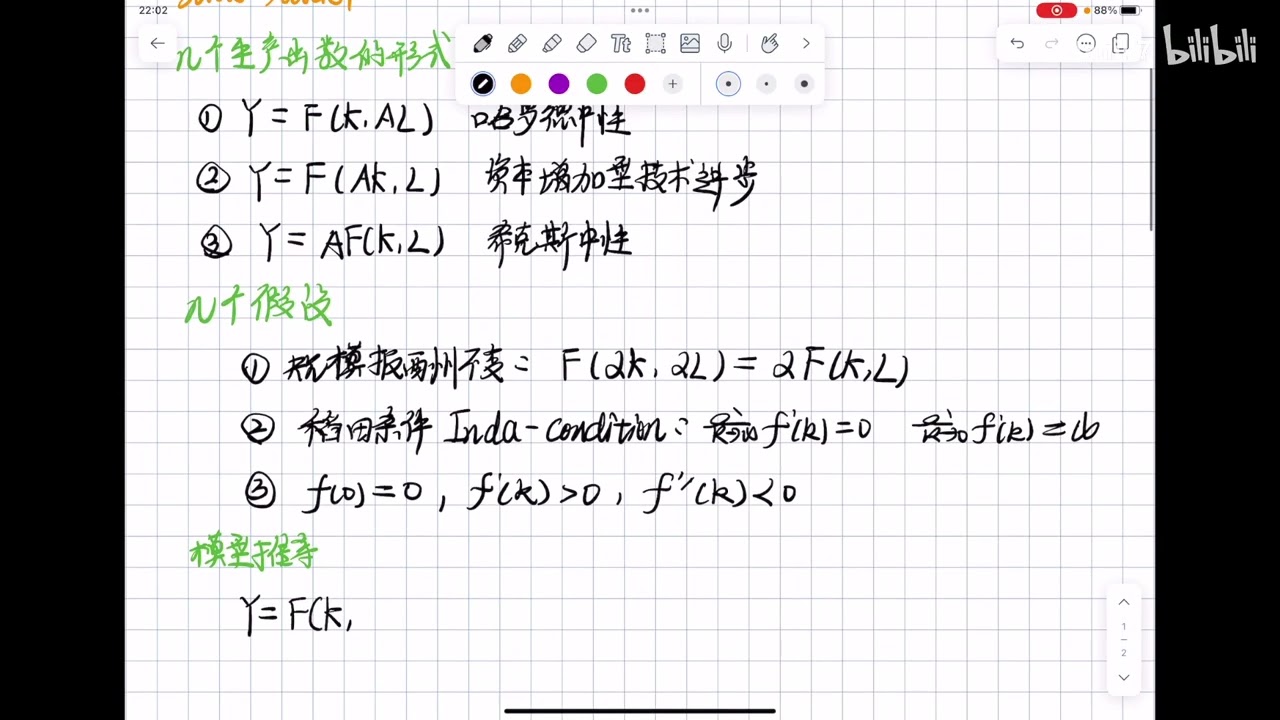 22:02
88%
bilibili
几个生产函数的形式
Tt
① Y = F(K, AL) 哈罗德中性
② Y = F(AK, L) 资本增加型技术进步
③ Y = AF(K, L) 希克斯中性
几个假设
① 规模报酬不变: F(2K, 2L) = 2F(K, L)
② 稻田条件 Inda-condition: f'(k) = 0 f'(k) = ∞
③ f(0) = 0, f'(k) > 0, f''(k) < 0
模型推导
Y = F(K,
1
2